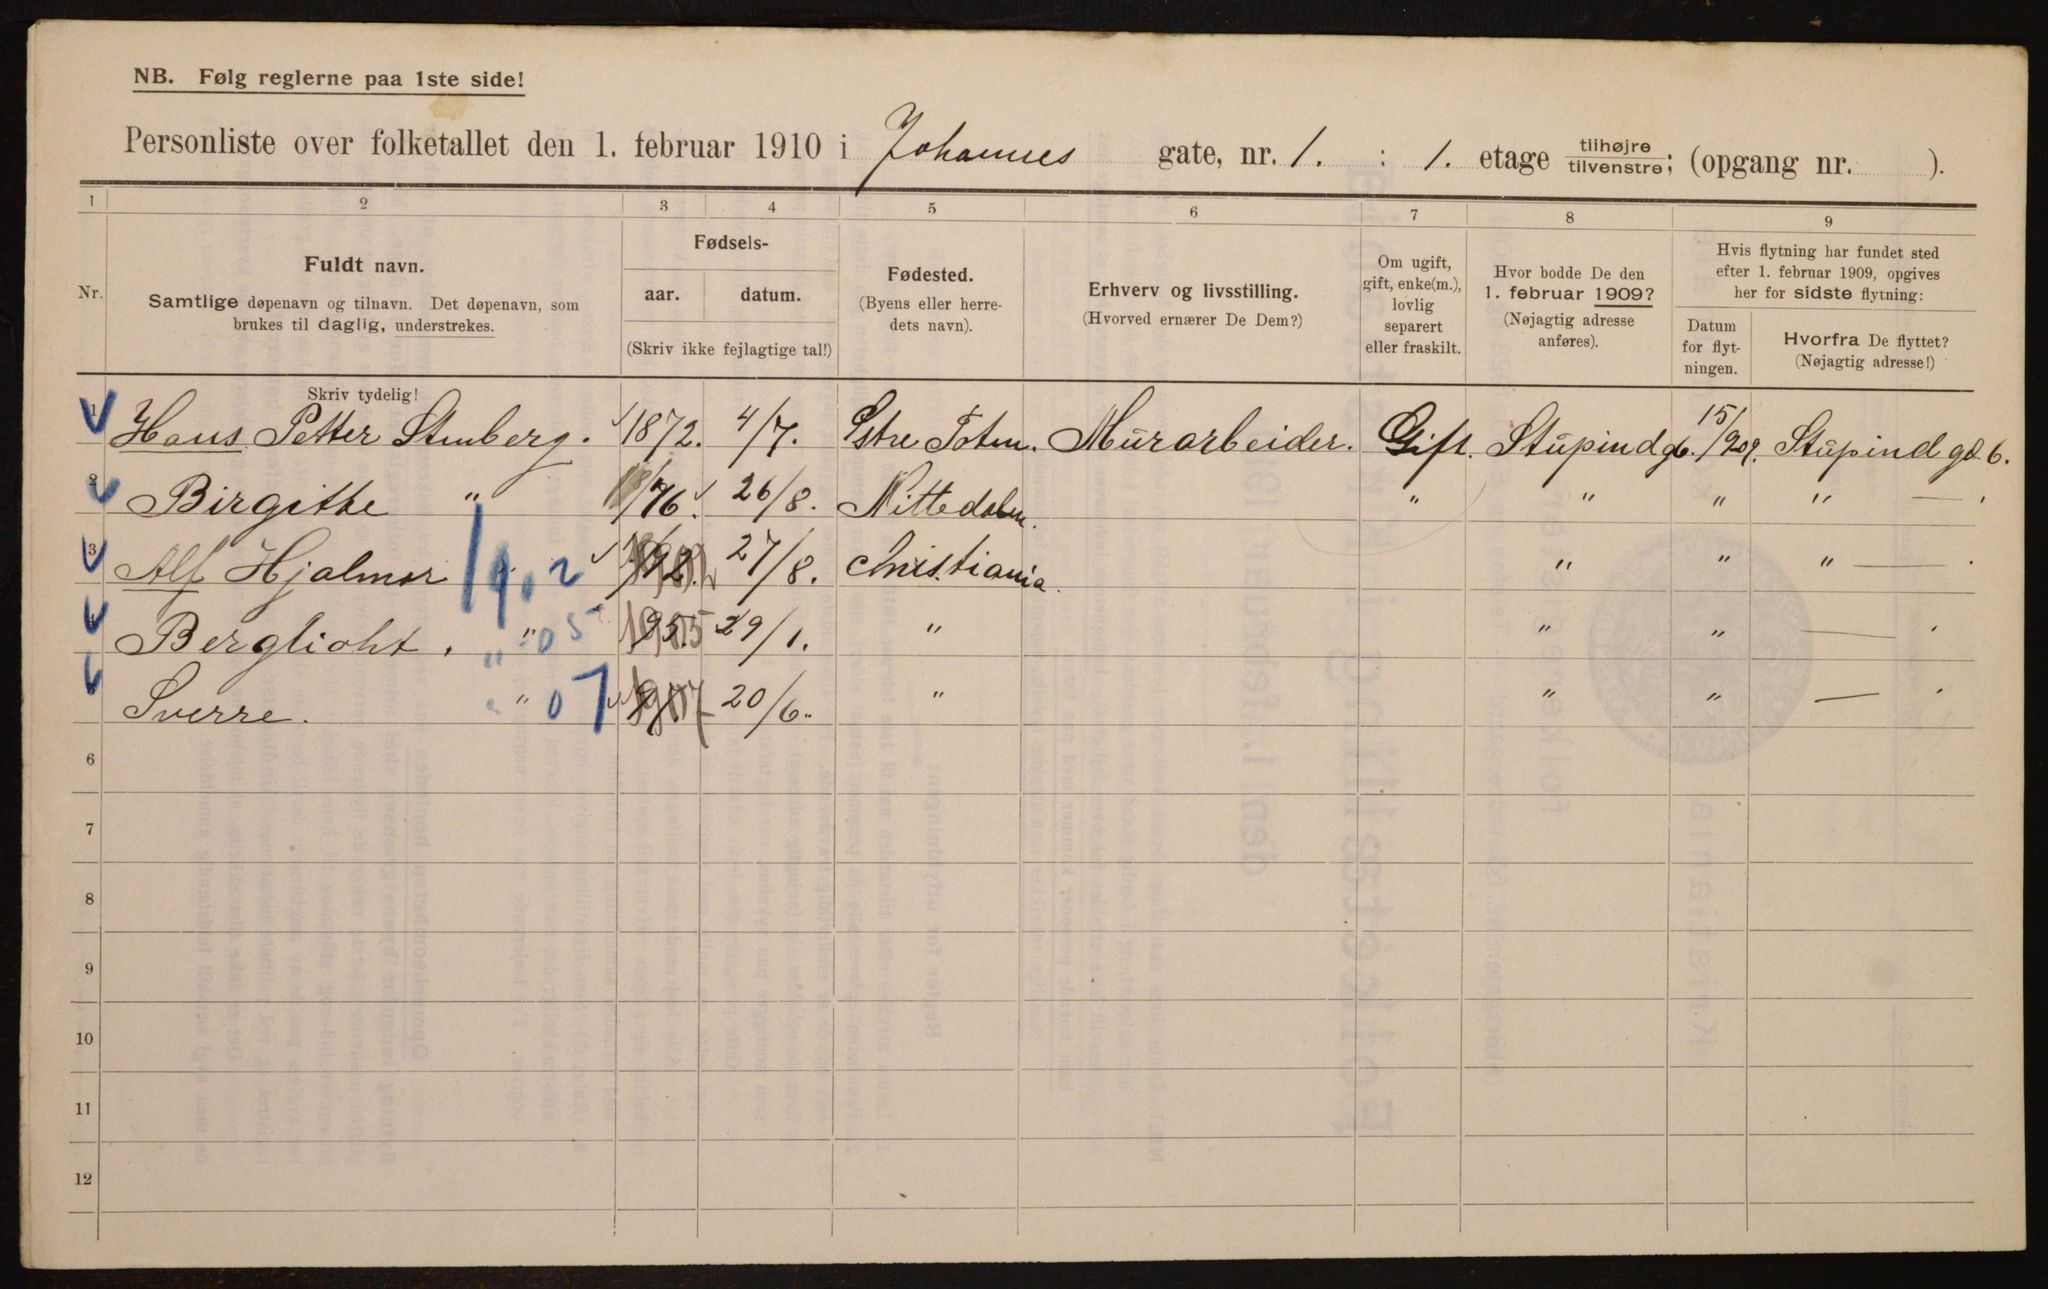 NB. Følg reglerne paa 1ste side!
Personliste over folketallet den 1. februar 1910 i Johannes gate, nr. 1. : 1. etage tilhøjre tilvenstre; (opgang nr. ).
1 2 3 4 5 6 7 8 9
Nr.
Fuldt navn.
Samtlige døpenavn og tilnavn. Det døpenavn, som
brukes til daglig, understrekes.
Skriv tydelig!
Fødsels-
aar. datum.
(Skriv ikke fejlagtige tal!)
Fødested.
(Byens eller herre-
dets navn).
Erhverv og livsstilling.
(Hvorved ernærer De Dem?)
Om ugift,
gift, enke(m.),
lovlig
separert
eller fraskilt.
Hvor bodde De den
1. februar 1909?
(Nøjagtig adresse
anføres).
Hvis flytning har fundet sted
efter 1. februar 1909, opgives
her for sidste flytning:
Datum
for flyt-
ningen.
Hvorfra De flyttet?
(Nøjagtig adresse!)
1 Hans Petter Stenberg. 1872. 4/7. Østre Toten. Murarbeider. Gift. Stupindg 6. 15/9 09. Stupind gd 6.
2 Birgithe " 76. 26/8. Nittedalen. " " " " — "
3 Alf Hjalmar 1902 27/8. Christiania. " " " —
4 Berglioht. " 05 1905 29/1. " " " —
Sverre. " 07 1907 20/6. " " " —
6
7
8
9
10
11
12